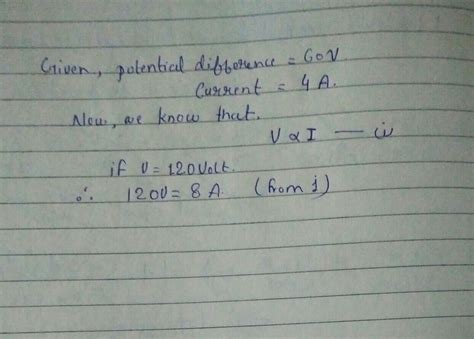 Given, potential difference = 60V.
Current = 4 A.
Now, we know that.
V ∝ I — (i)
if V = 120 Volt.
∴ 120V = 8 A. (from i)